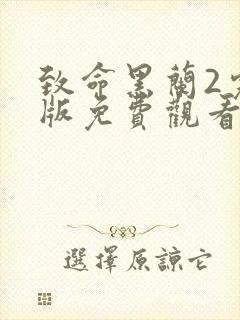 致命黑蘭2完
版免費觀看
選擇原諒它